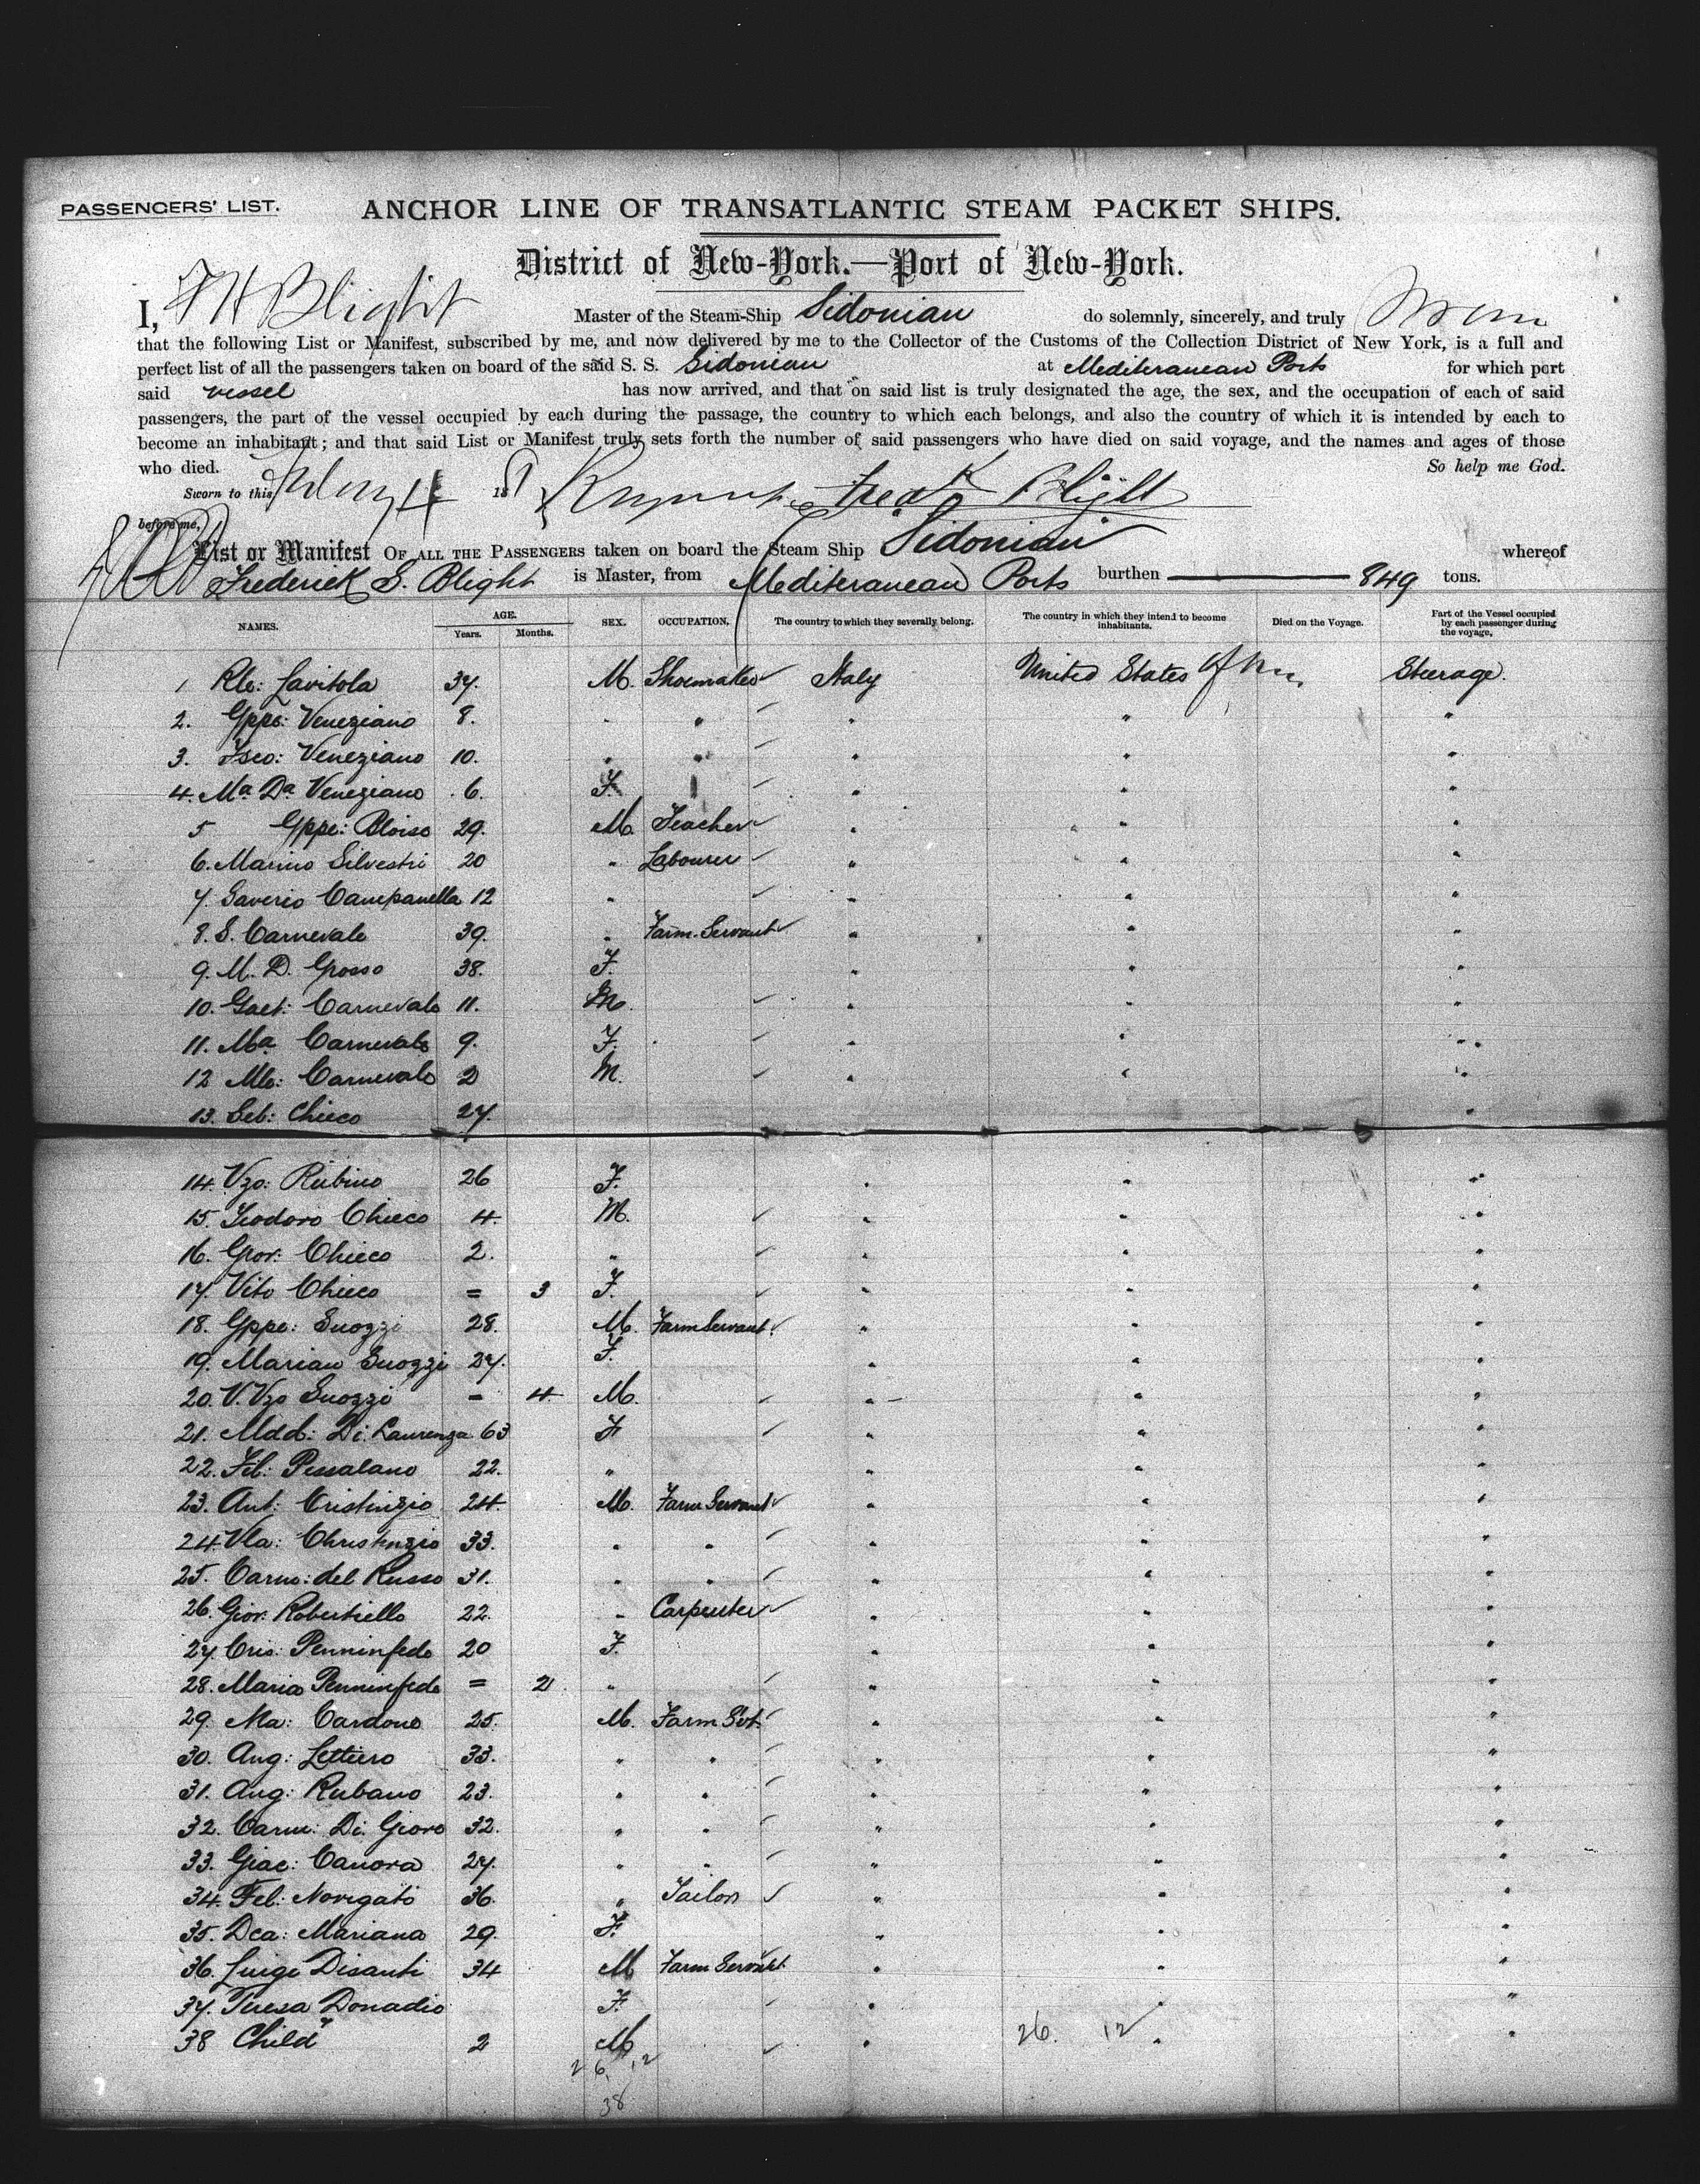 PASSENGERS' LIST.
ANCHOR LINE OF TRANSATLANTIC STEAM PACKET SHIPS.
District of New-York.—Port of New-York.
I, F H Blight Master of the Steam-Ship Sidonian do solemnly, sincerely, and truly
that the following List or Manifest, subscribed by me, and now delivered by me to the Collector of the Customs of the Collection District of New York, is a full and
perfect list of all the passengers taken on board of the said S. S. Sidonian at Mediteranean Ports for which port
said vessel has now arrived, and that on said list is truly designated the age, the sex, and the occupation of each of said
passengers, the part of the vessel occupied by each during the passage, the country to which each belongs, and also the country of which it is intended by each to
become an inhabitant; and that said List or Manifest truly sets forth the number of said passengers who have died on said voyage, and the names and ages of those
who died. So help me God.
Sworn to this 18 Fredk Blight
before me,
List or Manifest OF ALL THE PASSENGERS taken on board the Steam Ship Sidonian whereof
Frederick S. Blight is Master, from Mediteranean Ports burthen 849 tons.
NAMES. AGE. Years. Months. SEX. OCCUPATION. The country to which they severally belong. The country in which they intend to become inhabitants. Died on the Voyage. Part of the Vessel occupied by each passenger during the voyage.
1 Rle: Lavitola 37. M. Shoemaker Italy United States Steerage.
2. Gppe: Veneziano 8. " " " "
3. Fsco: Veneziano 10. " " " " "
4. Ma Da Veneziano 6. F. " " "
5 Gppe: Bloise 29. M. Teacher " " "
6. Marino Silvestri 20 " Labourer " " "
7. Saverio Campanella 12 " " " "
8. S. Carnevale 39. " Farm. Servant " " "
9. M. D. Grosso 38. F. " " "
10. Gaet: Carnevale 11. M. " " "
11. Ma Carnevale 9. F. " " "
12 Mle: Carnevale 2 M. " " "
13. Seb: Chieco 27. "
14. Vzo: Rubino 26 F. " " "
15. Teodoro Chieco 4. M. " " "
16. Giov: Chieco 2. " " " "
17. Vito Chieco = 3 F. " " "
18. Gppe: Suozzi 28. M. Farm Servant. " " "
19. Marian Suozzi 27. F. " " "
20. V. Vzo Suozzi = 4. M. " " "
21. Mdd: Di: Laurenza 63 F " " "
22. Fil: Pessalano 22. " " " "
23. Ant: Cristinzio 24. M. Farm Servant " " "
24. Vla: Christinzio 33. " " " " "
25. Carm: del Russo 31. " " " " "
26. Giov: Robertiello 22. " Carpenter " " "
27. Cris: Penninfede 20 F. " " "
28. Maria Penninfede = 2 " " " "
29. Ma: Cardone 25. M. Farm Svt. " " "
30. Ang: Lettiero 33. " " " " "
31. Ang: Rubano 23. " " " " "
32. Carm: Di: Gioro 32. " " " " "
33. Giac: Canora 27. " " " " "
34. Fel: Novigato 36. " Tailor " " "
35. Dca: Mariana 29. F. " " "
36. Luigi Disanti 34 M Farm Servant " " "
37. Teresa Donadio F. " " "
38 Child " 2 M " " "
26. 12
26. 12
38